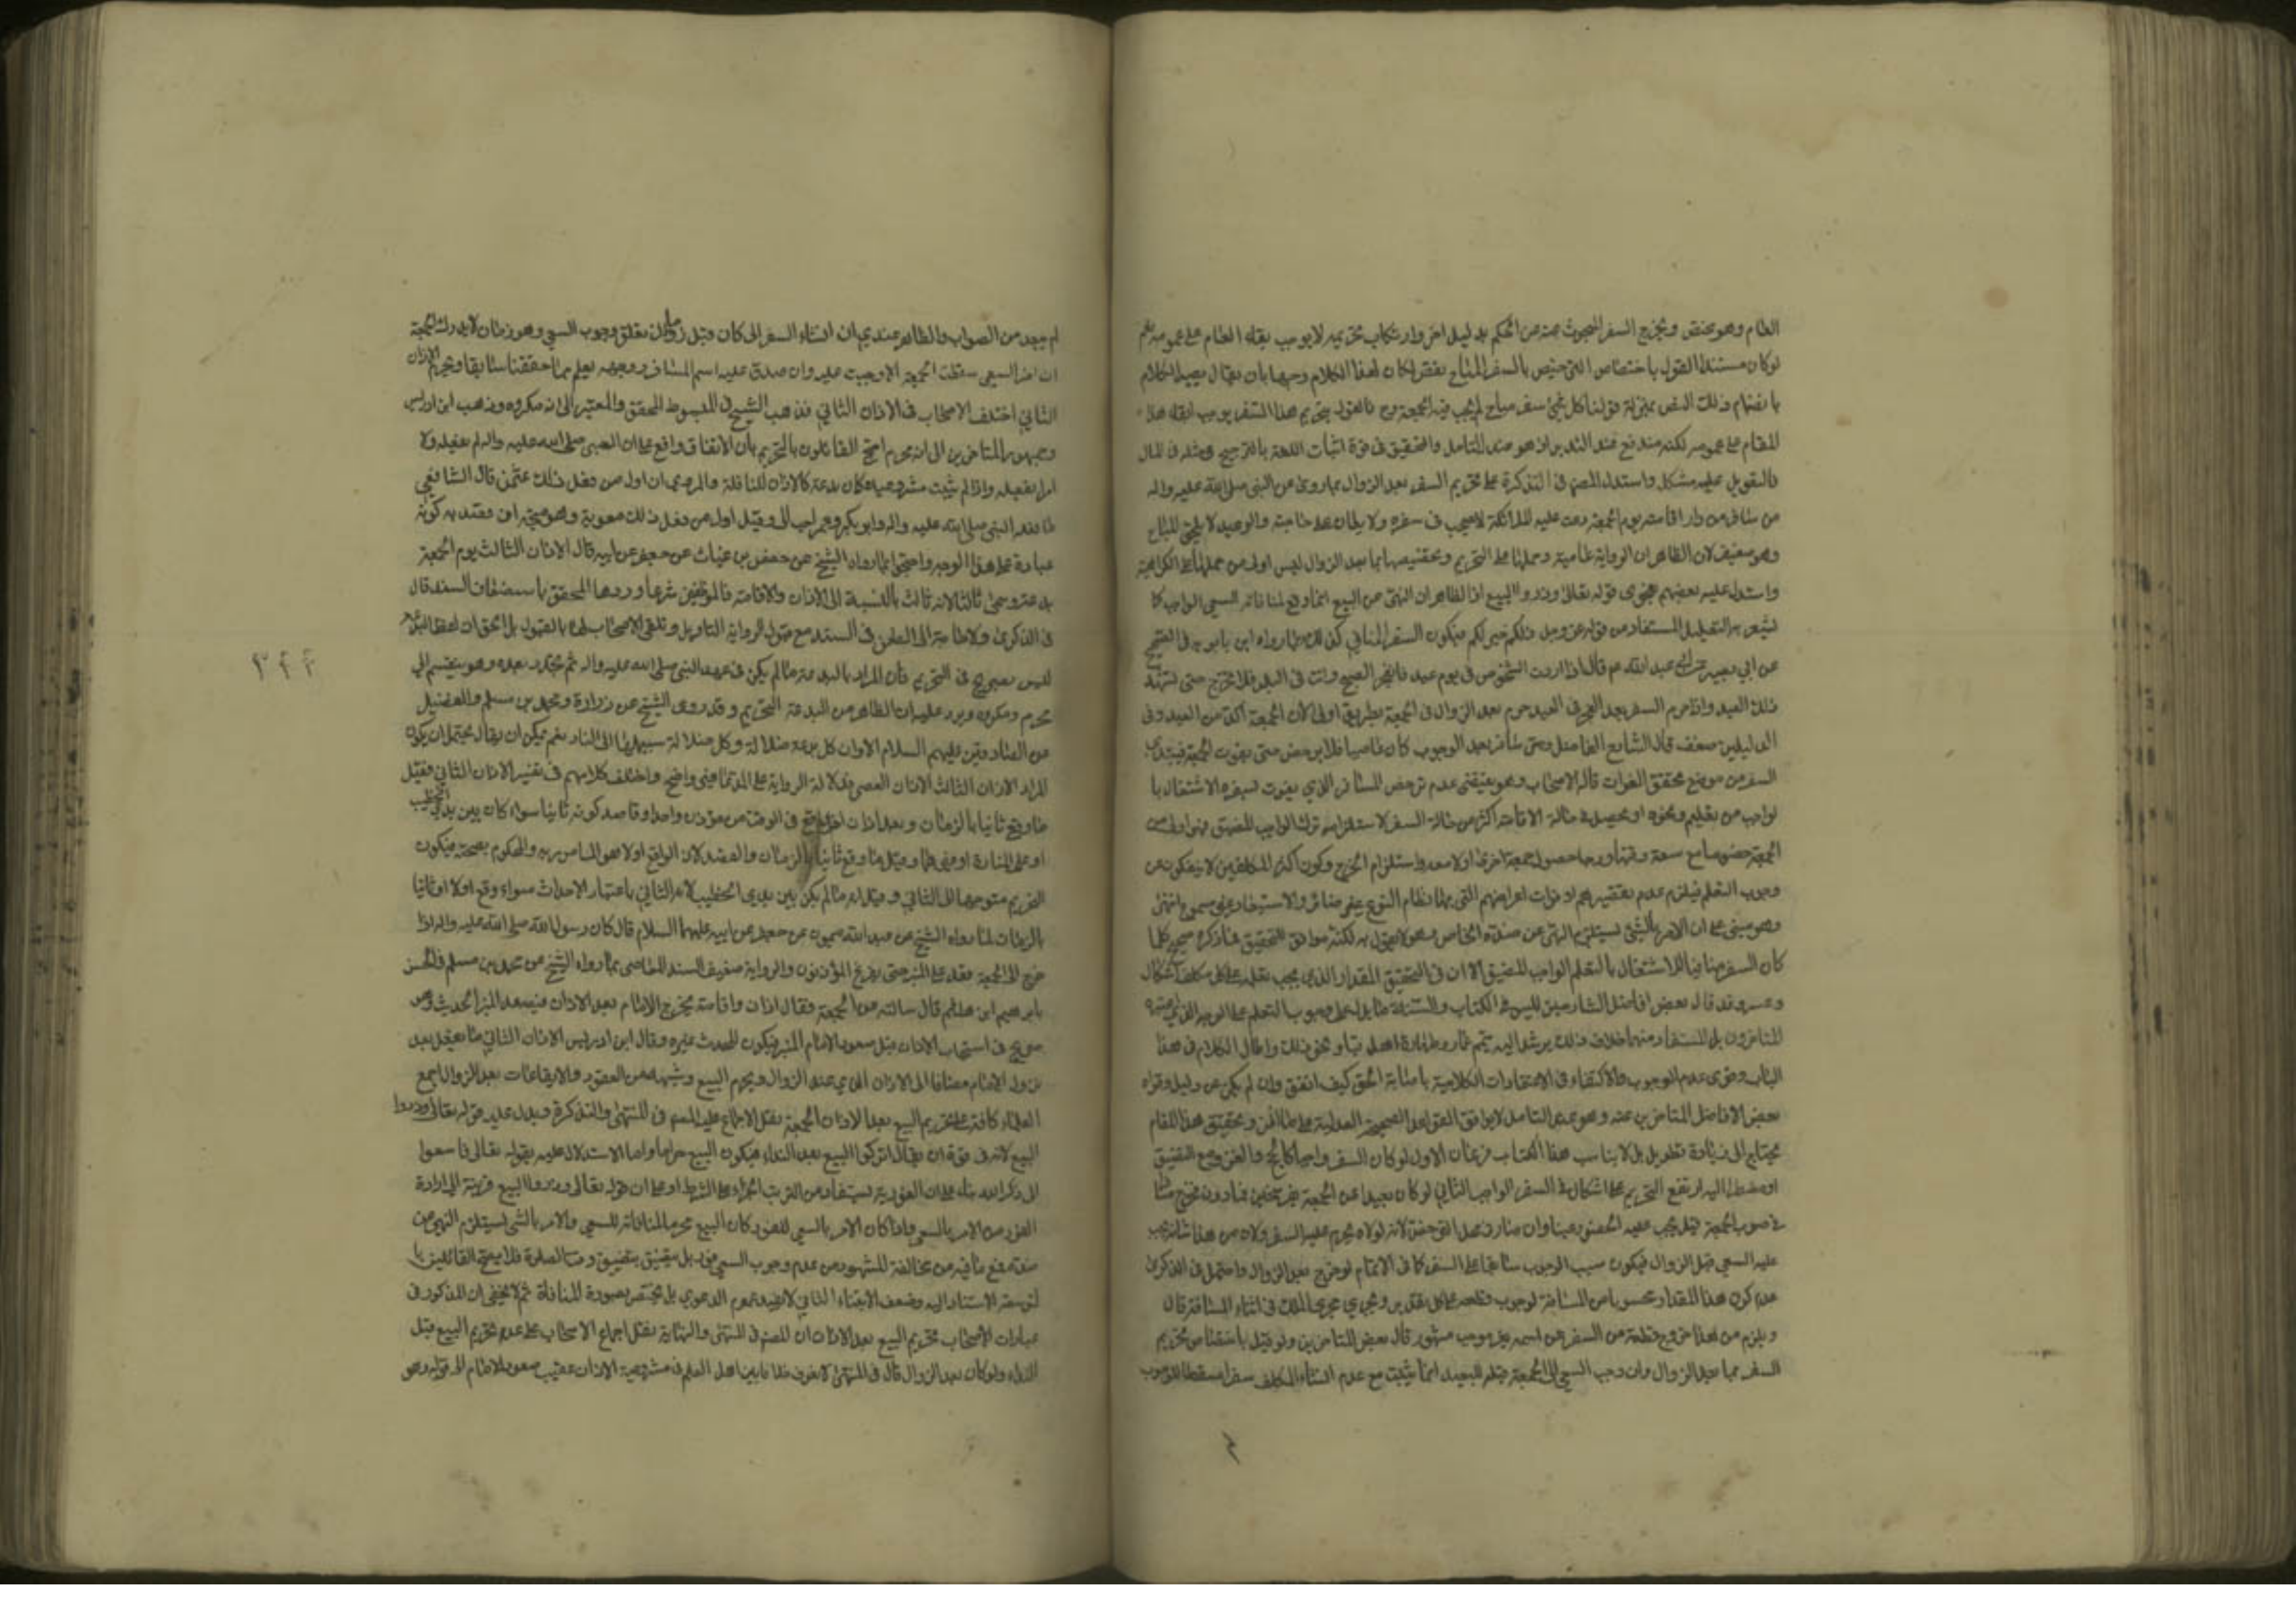 العام وهو مخصص ويخرج السفر المبحوث عنه عن الحكم بدليل اخر وارتكاب تحريمه لا يوجب بقاء العام على عمومه نعم
لو كان مستند القول باختصاص الترخيص بالسفر المباح نفس لكان لهذا الكلام وجها بان يقال يصير الكلام
بانضمام ذلك النص بمنزلة قولنا كل سفر مباح لم يجب فيه الجمعة وح فالقول بتحريم هذا السفر يوجب ابقاء هذا
المقام على عمومه لكنه مندفع عند التدبر اذ هو عند التامل والتحقيق في قوة اثبات اللغة بالترجيح ومثله في المال
فالتعويل عليه مشكل واستدل المصنف في التذكرة على تحريم السفر بعد الزوال بما روي عن النبي صلى الله عليه واله
من سافر من دار اقامته يوم الجمعة دعت عليه الملائكة لا يصحب في سفره ولا يعان على حاجته والوعيد لا يلحق المباح
وهو ضعيف لان الظاهر ان الرواية عامية وحملها على التحريم وتخصيصها بما بعد الزوال ليس اولى من حملها على الكراهية
واستدل عليه بعضهم بفحوى قوله تعالى وذروا البيع اذ الظاهر ان النهي عن البيع انما وقع لمنافاته السعي الواجب كا
يشعر به التعليل المستفاد من قوله عز وجل ذلكم خير لكم فيكون السفر المنافي كذلك وبما رواه ابن بابويه في الصحيح
عن ابي بصير عن ابي عبد الله ع قال اذا اردت الشخوص في يوم عيد فانفجر الصبح وانت في البلد فلا تخرج حتى تشهد
ذلك العيد واذا حرم السفر بعد الفجر في العيد حرم بعد الزوال في الجمعة بطريق اولى لان الجمعة اكد من العيد وفي
الدليلين ضعف قال الشارح الفاضل ومتى سافر بعد الوجوب كان عاصيا فلا يترخص حتى تفوت الجمعة فيبتدي
السفر من موضع تحقق الفوات قاله الاصحاب وهو يقتضي عدم ترخص المسافر الذي يفوت بسفره الاشتغال با
لواجب من تعليم ونحوه او يحصل في حالة الاقامة اكثر من حالة السفر لاستلزامه ترك الواجب المضيق فهو اولى من
الجمعة خصوصا مع سعة وقتها ورجا حصول جمعة اخرى اولا معه واستلزام الحرج وكون اكثر المكلفين لا ينفكون عن
وجوب التعلم فيلزم عدم تقصيرهم او فوات اغراضهم التي بها نظام النوع غير ضائر والاستبعاد غير مسموع انتهى
وهو مبني على ان الامر بالشيء يستلزم النهي عن ضده الخاص وهو لا يقول به لكنه موافق للتحقيق فما ذكره صحيح كلما
كان السفر منافيا للاشتغال بالتعلم الواجب المضيق الا ان في التحقيق المقدار الذي يجب تعلمه على كل مكلف اشكال
وعسر وقد قال بعض افاضل الشارحين ليس في الكتاب والسنة ما يدل على وجوب التعلم على الوجه الذي اعتبره
المتاخرون بل المستفاد منهما خلاف ذلك يرشد اليه تيمم عمار وطهارة اهل قبا ونحو ذلك واطال الكلام في هذا
الباب وقوى عدم الوجوب والاكتفاء في الاعتقادات الكلامية باصابة الحق كيف اتفق وان لم يكن عن دليل وقواه
بعض الافاضل المتاخرين عنه وهو عند التامل لا يوافق القواعد الصحيحة العدلية على ما اظن وتحقيق هذا المقام
يحتاج الى زيادة تطويل بل لا يناسب هذا الكتاب فرعان الاول لو كان السفر واجبا كالحج والغزو مع التضيق
او مضطرا اليه ارتفع التحريم على اشكال في السفر الواجب الثاني لو كان بعيدا عن الجمعة بفرسخين فما دون فخرج مسافرا
في صوب الجمعة قيل يجب عليه الحضور عينا وان صار في محل الترخص لانه لولاه لحرم عليه السفر ولان من هذا شانه يجب
عليه السعي قبل الزوال فيكون سبب الوجوب سابقا على السفر كما في الاتمام لو خرج بعد الزوال واحتمل في الذكرى
عدم كون هذا المقدار محسوبا من المسافة لوجوب قطعه على كل تقدير ويجري مجرى الملك في اثناء المسافة قال
ويلزم من هذا خروج قطعة من السفر عن اسمه بغير موجب مشهور قال بعض المتاخرين ولو قيل باختصاص تحريم
السفر بما بعد الزوال وان وجب السعي الى الجمعة قبله للبعيد انما يثبت مع عدم انشاء المكلف سفرا مسقطا للوجوب
لم يبعد من الصواب والظاهر عندي ان انشاء السفر ان كان قبل زمان تعلق وجوب السعي وهو زمان لا يدرك الجمعة
ان اخر السعي سقطت الجمعة الا وجبت عليه وان صدق عليه اسم المسافر ووجهه يعلم مما حققنا سابقا ويحرم الاذان
الثاني اختلف الاصحاب في الاذان الثاني فذهب الشيخ في المبسوط المحقق والمعتبر الى انه مكروه وذهب ابن ادريس
وجمهور المتاخرين الى انه محرم احتج القائلون بالتحريم بان الاتفاق واقع على ان النبي صلى الله عليه واله لم يفعله ولا
امر بفعله واذا لم يثبت مشروعيته كان بدعة كالاذان للنافلة والمروي ان اول من فعل ذلك عثمن قال الشافعي
ما فعله النبي صلى الله عليه واله وابو بكر وعمر احب الي وقيل اول من فعل ذلك معوية وهو متجه ان قصد به كونه
عبادة على هذا الوجه واحتجوا بما رواه الشيخ عن حفص بن غياث عن جعفر عن ابيه قال الاذان الثالث يوم الجمعة
بدعة وسمى ثالثا لانه ثالث بالنسبة الى الاذان والاقامة فالموظفين شرعا وردها المحقق باستضعاف السند قال
في الذكرى ولا حاجة الى الطعن في السند مع قبول الرواية التاويل وتلقي الاصحاب لها بالقبول بل الحق ان لفظ البدعة
ليس بصريح في التحريم فان المراد بالبدعة ما لم يكن في عهد النبي صلى الله عليه واله ثم تجدد بعده وهو ينقسم الى
محرم ومكروه ويرد عليه ان الظاهر من البدعة التحريم وقد روى الشيخ عن زرارة ومحمد بن مسلم والفضيل
عن الصادقين عليهم السلام الا وان كل بدعة ضلالة وكل ضلالة سبيلها الى النار نعم يمكن ان يقال يحتمل ان يكون
المراد الاذان الثالث الاذان العصر فدلالة الرواية على المدعا غير واضح واختلف كلامهم في تفسير الاذان الثاني فقيل
ما وقع ثانيا بالزمان وبعد اذان اخر واقع في الوقت من مؤذن واحد او قاصد كونه ثانيا سواء كان بين يدي الخطيب
او على المنارة او غيرهما وقيل ما وقع ثانيا بالزمان والقصد لان الواقع اولا هو المامور به والمحكوم بصحته فيكون
التحريم متوجها الى الثاني وقيل انه ما لم يكن بين يدي الخطيب لانه الثاني باعتبار الاحداث سواء وقع اولا او ثانيا
بالزمان لما رواه الشيخ عن عبد الله ميمون عن جعفر عن ابيه عليهما السلام قال كان رسول الله صلى الله عليه واله اذا
خرج الى الجمعة قعد على المنبر حتى يفرغ المؤذنون والرواية ضعيف السند للعامي بما رواه الشيخ عن محمد بن مسلم في الحسن
بابرهيم ابن هاشم قال سالته عن الجمعة فقال اذان واقامة يخرج الامام بعد الاذان فيصعد المنبر الحديث وهو
صريح في استحباب الاذان قبل صعود الامام المنبر فيكون المحدث غيره وقال ابن ادريس الاذان الثاني ما يفعل بعد
نزول الامام مضافا الى الاذان الذي عند الزوال ويحرم البيع وشبهه من العقود والايقاعات بعد الزوال اجمع
العلماء كافة على تحريم البيع بعد الاذان الجمعة نقل الاجماع عليه المصنف في المنتهى والتذكرة ويدل عليه قوله تعالى وذروا
البيع لانه في قوة ان يقال اتركوا البيع بعد النداء فيكون البيع حراما واما الاستدلال عليه بقوله تعالى فاسعوا
الى ذكر الله بناء على ان الفورية يستفاد من الترتب الجزاء على الشرط او على ان قوله تعالى وذروا البيع قرينة الى ارادة
الفور من الامر بالسعي واذا كان الامر بالسعي للفور كان البيع محرما لمنافاته للسعي والامر بالشيء يستلزم النهي عن
ضده فمع ما فيه من مخالفة المشهور من عدم وجوب السعي فورا بل يتضيق بتضيق وقت الصلوة فلا يصح القائلين با
لتوسعة الاستناد اليه وضعف الابتناء الثاني لا يفيد عموم الدعوى بل يختص بصورة المنافاة ثم لا يخفى ان المذكور في
عبارات الاصحاب تحريم البيع بعد الاذان ان المصنف في المنتهى والنهاية نقل اجماع الاصحاب على عدم تحريم البيع قبل
النداء ولو كان بعد الزوال قال في المنتهى لا نعرف خلافا بين اهل العلم في مشروعية الاذان عقيب صعود الامام المنبر وهو